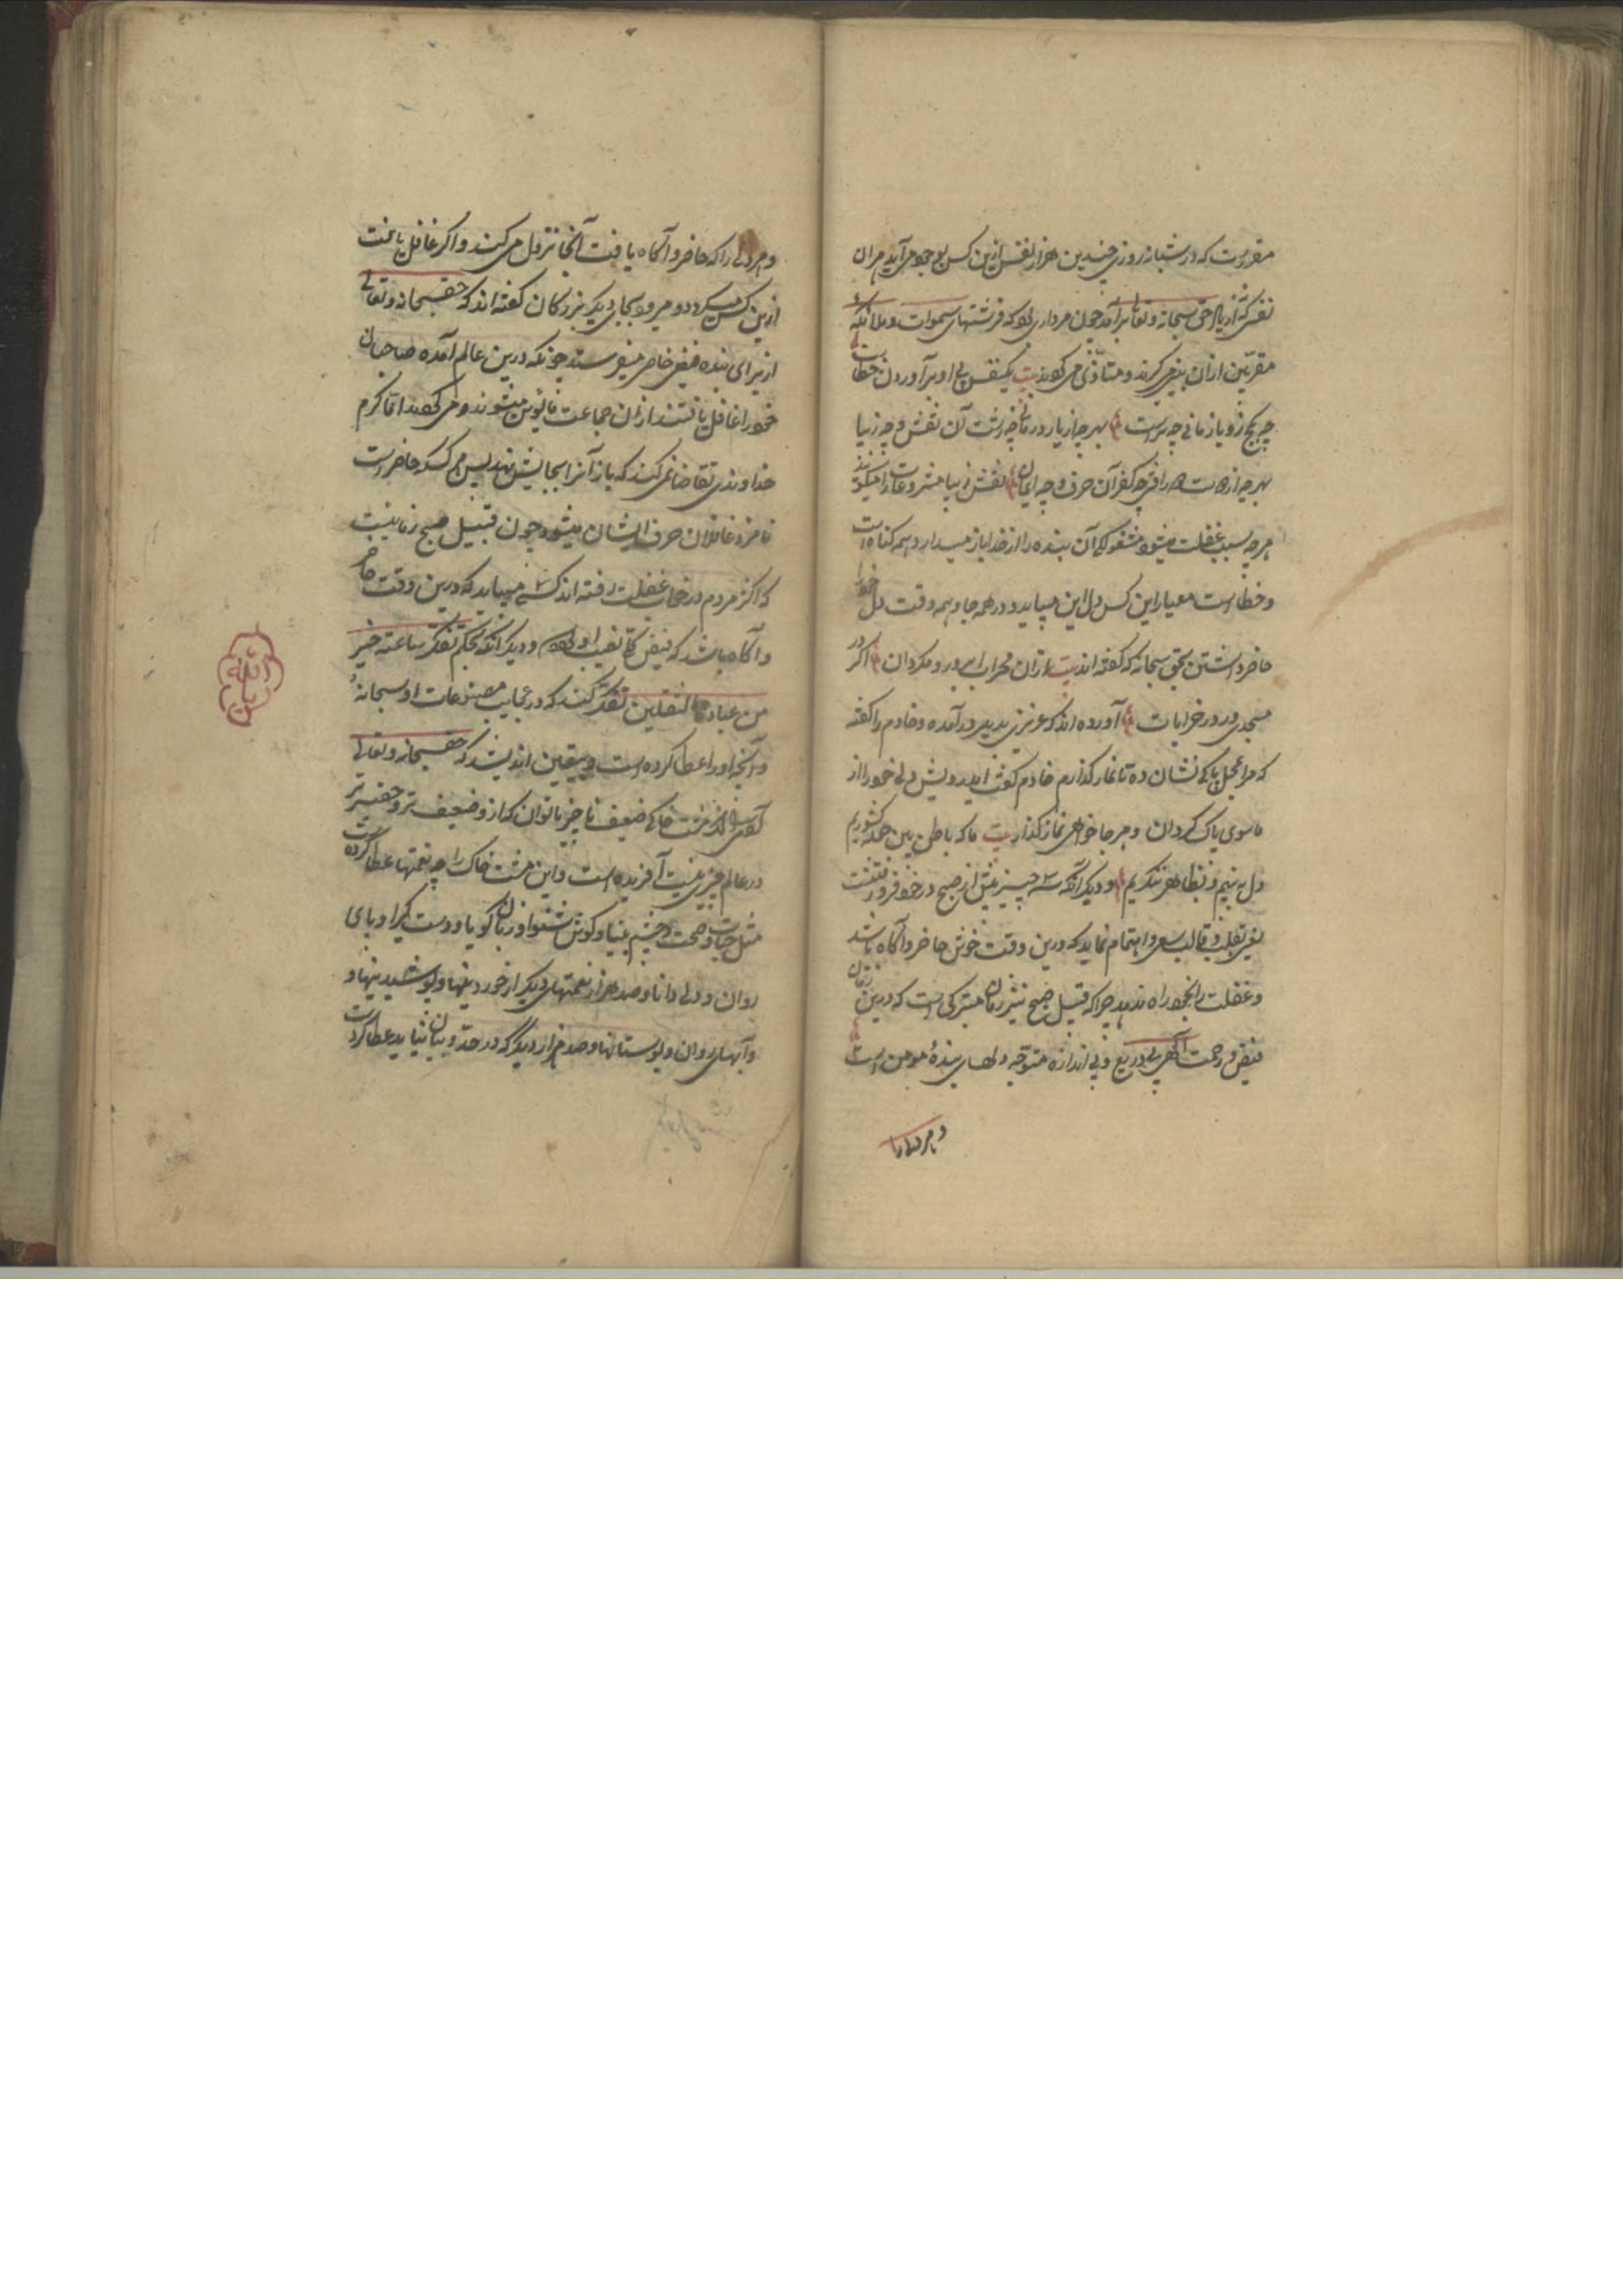 مقررست که در شبانه روزی چندین هزار نفس ازین کس بوجود می آید هر آن
نفس که از یاد حق سبحانه و تعالی برآمد چون مرداری بود که فرشتهای سموات و ملائکه
مقربین ازان بنفر میگیرند و متأذی می گردند بیت یکنفس بی او برآوردن خطاست
چه بکج زو باز مانی چه براست بهر چه از یار دور مانی چه زشت آن نقش و چه زیبا
بهر چه از راه راافتی چه کفر آن حرف و چه ایمان نقش زیبا مشروعات را میگویند
هر چه سبب غفلت میشود و مشغولی آن بنده را از خدا باز میدارد همه گناه است
و خطاست معیار این کس دل این میباید و در همه جا و همه وقت دل خود را
حاضر داشتن بحق سبحانه که گفته اند بیت ازان محراب ابرو رو مگردان اگر در
مسجدی ور در خرابات آورده اند که عزیزی بدیری درآمده و خادم را گفته
که مرا محل پاکی نشان ده تا نماز گذارم خادم گفت ای درویش دلی خود را از
ماسوی پاک گردان و هر جا خواهی نماز گذار بیت ما که باطن بین جمله کشوریم
دل به بینیم و بظاهر ننگریم و دیگر آنکه سه چیز پیش از صبح در خود فرو
بقلب و قالب سعی و اهتمام نماید که درین وقت خوش حاضر و آگاه باشد
و غفلت را بخود راه ندهد چرا که قبیل صبح نیز زمان متبرکی است که درین زمان
فیض و رحمت الهی بی دریغ و بی اندازه متوجه دلهای بنده مومن است
و هر دلی را
و هر دلی را که حاضر و آگاه یافت آنجا نزول می کنند و اگر غافل یافت
ازین کس میگردد و میرود بجای دیگر بزرگان گفته اند که حقسبحانه و تعالی
از برای بنده فیض خاص میفرستد چونکه درین عالم آمده صاحبان
خود را غافل یافتند ازان جماعت مأیوس میشوند و می گویند اما کرم
خداوندی تقاضا نمی کند که باز آنرا بجایش نهد پس هر کسکه حاضر است
نامزد غافلان صرف ایشان میشود چون قبیل صبح زمانیست
که اکثر مردم در خواب غفلت رفته اند کسی میباید که درین وقت حاضر
و آگاه باشد که فیض نصیب او بود و دیگر آنکه بحکم تفکر ساعته خیر
من عبادة الثقلین تفکر کنند که در عجایب مصنوعات او سبحانه
و آنچه او را عطا کرده است و بیقین اندیشد که حقسبحانه و تعالی
آدمی را از مشت خاکی ضعیف ناچیز ناتوان که ازو ضعیف تر و حقیرتر
در عالم چیزی نیست آفریده است و این مشت خاک را چه نعمتها عطا کرده است
مثل حیات و صحت و چشم بینا و گوش شنوا و زبان گویا و دست گیرا و پای
روان و دلی دانا و صد هزار نعمتهای دیگر از خوردنیها و پوشیدنیها و
و آبهای روان و بوستانها و صد هزار دیگر که در حد و بیان نیاید عطا کرده است
الله